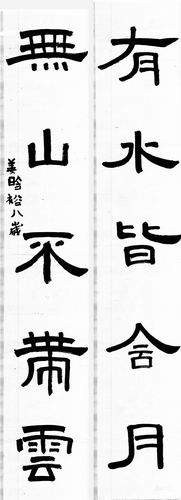 有水皆含月
無山不帶雲
姜昑裕八歲